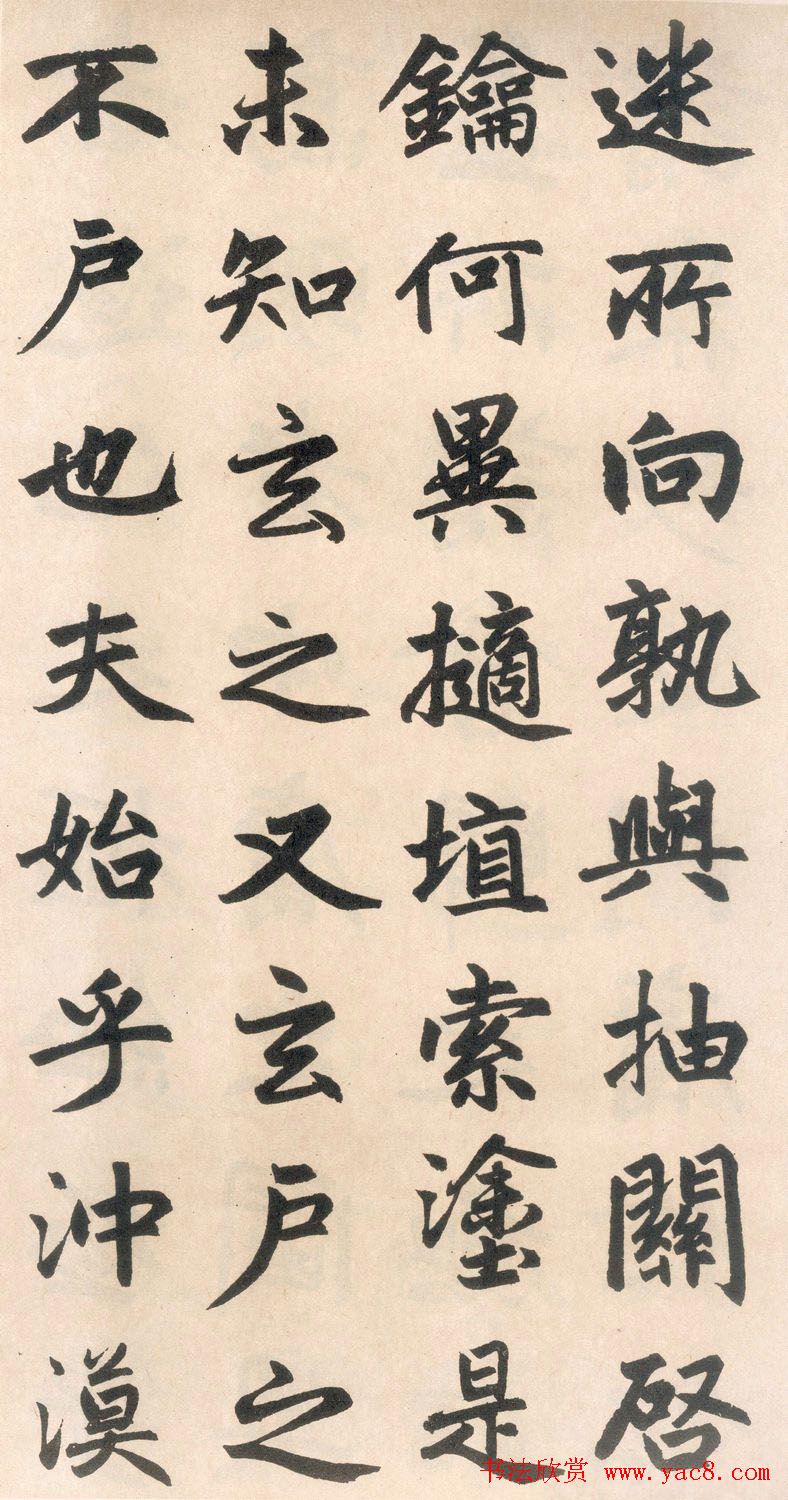 迷所向孰與抽關啓
鑰何異擿埴索塗是
未知玄之又玄户之
不户也夫始乎沖漠
书法欣赏 www.yac8.com